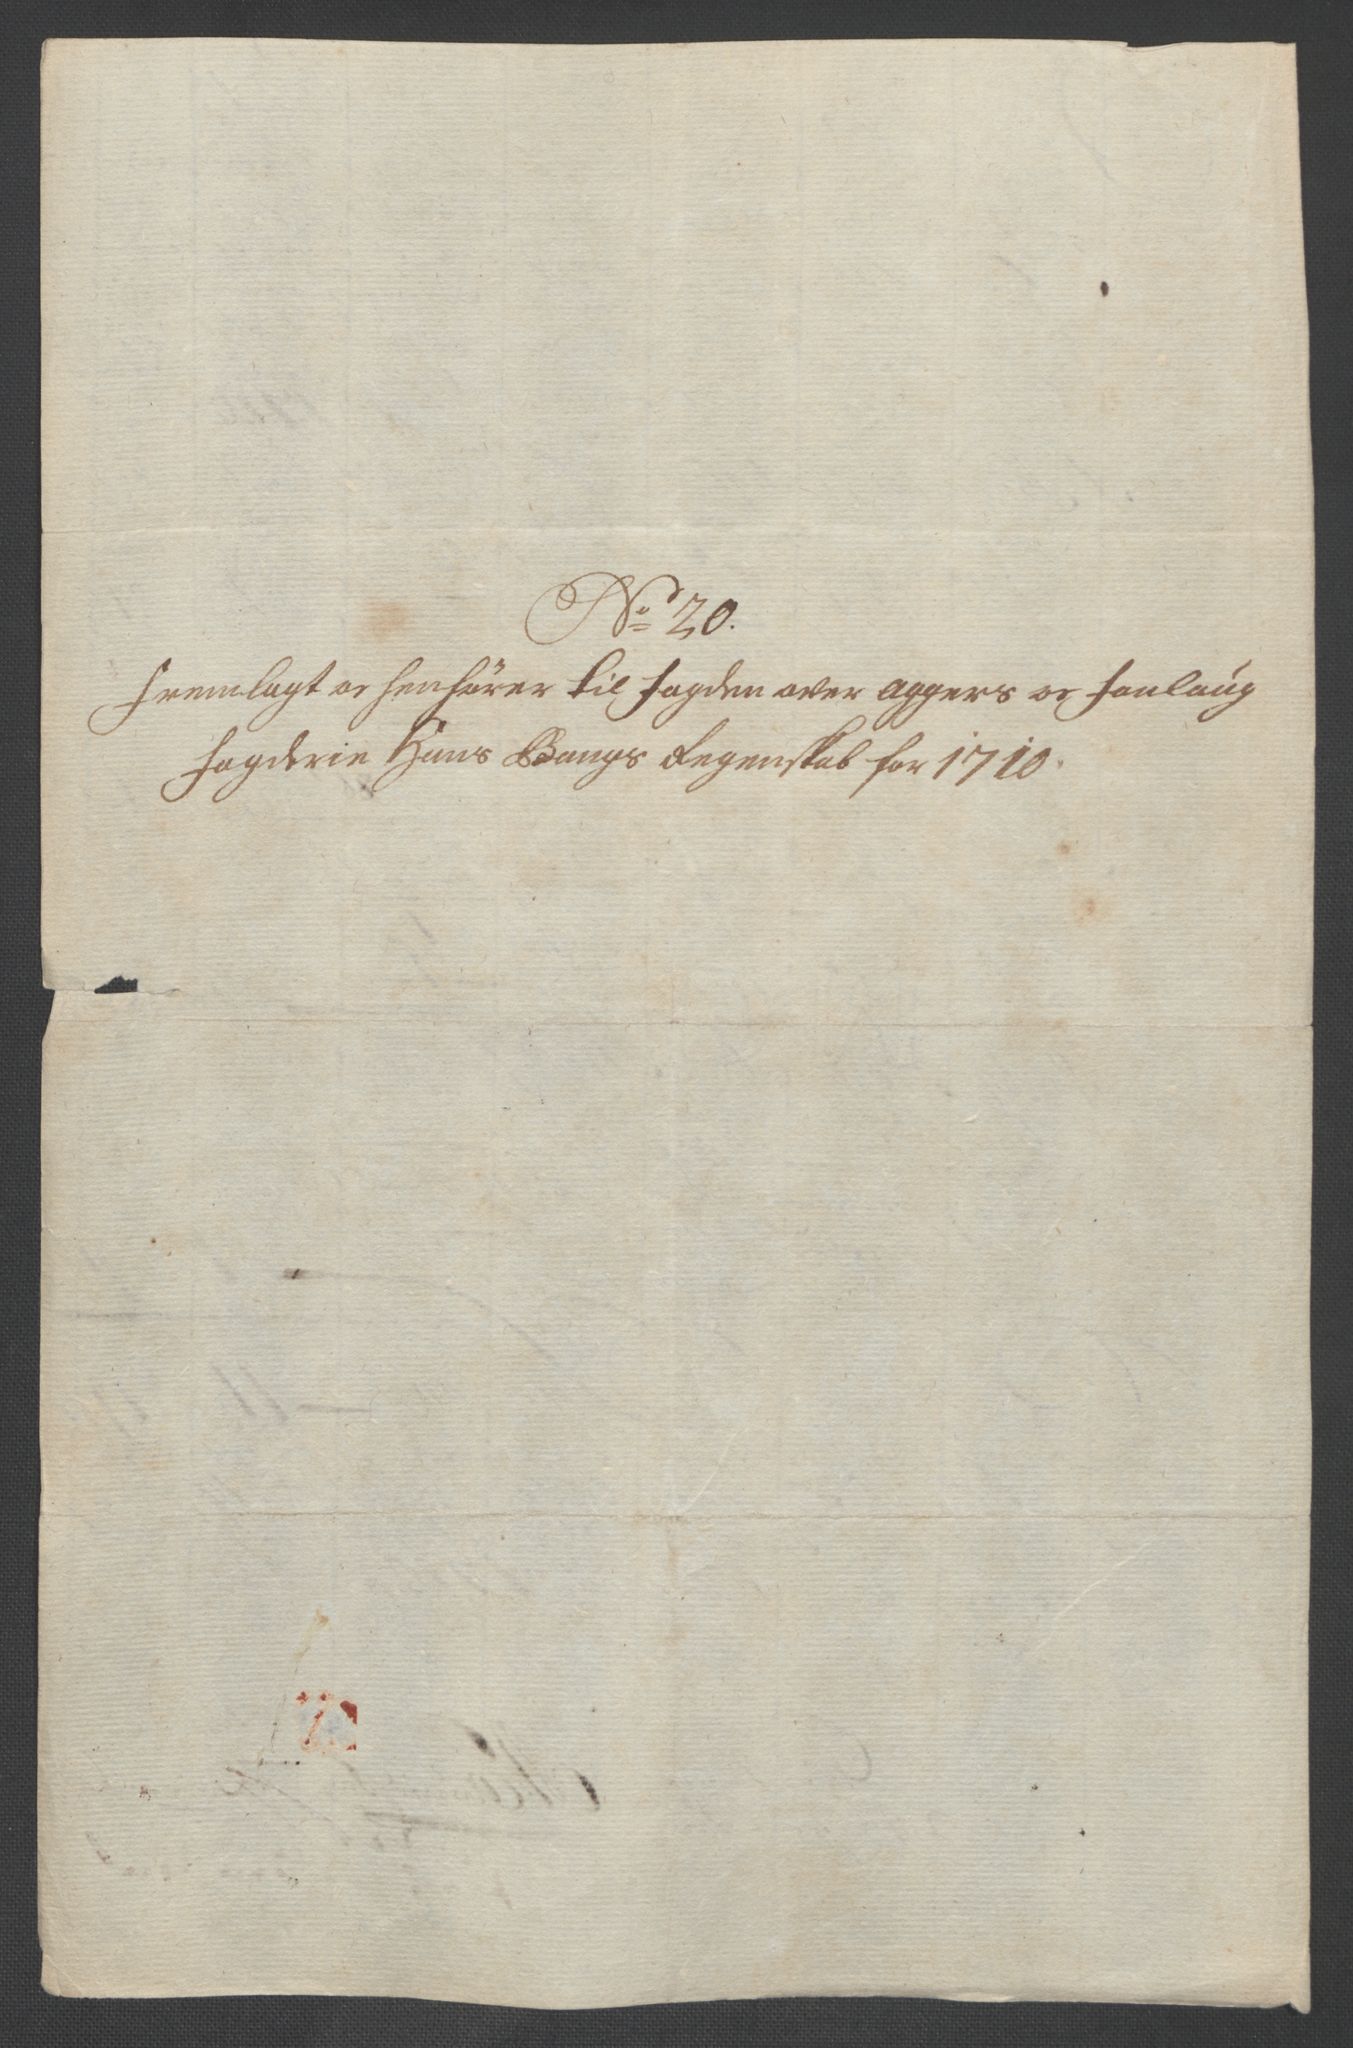 No 20.
Fremlagt oc henhører til fogden over Aggers oc follaug
fogderie Hans Bangs Regenskab for 1710.